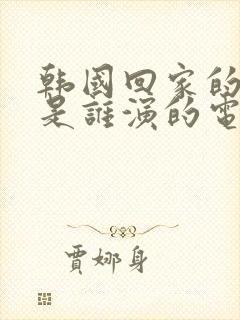 韩國回家的
是誰演的電
賈娜身